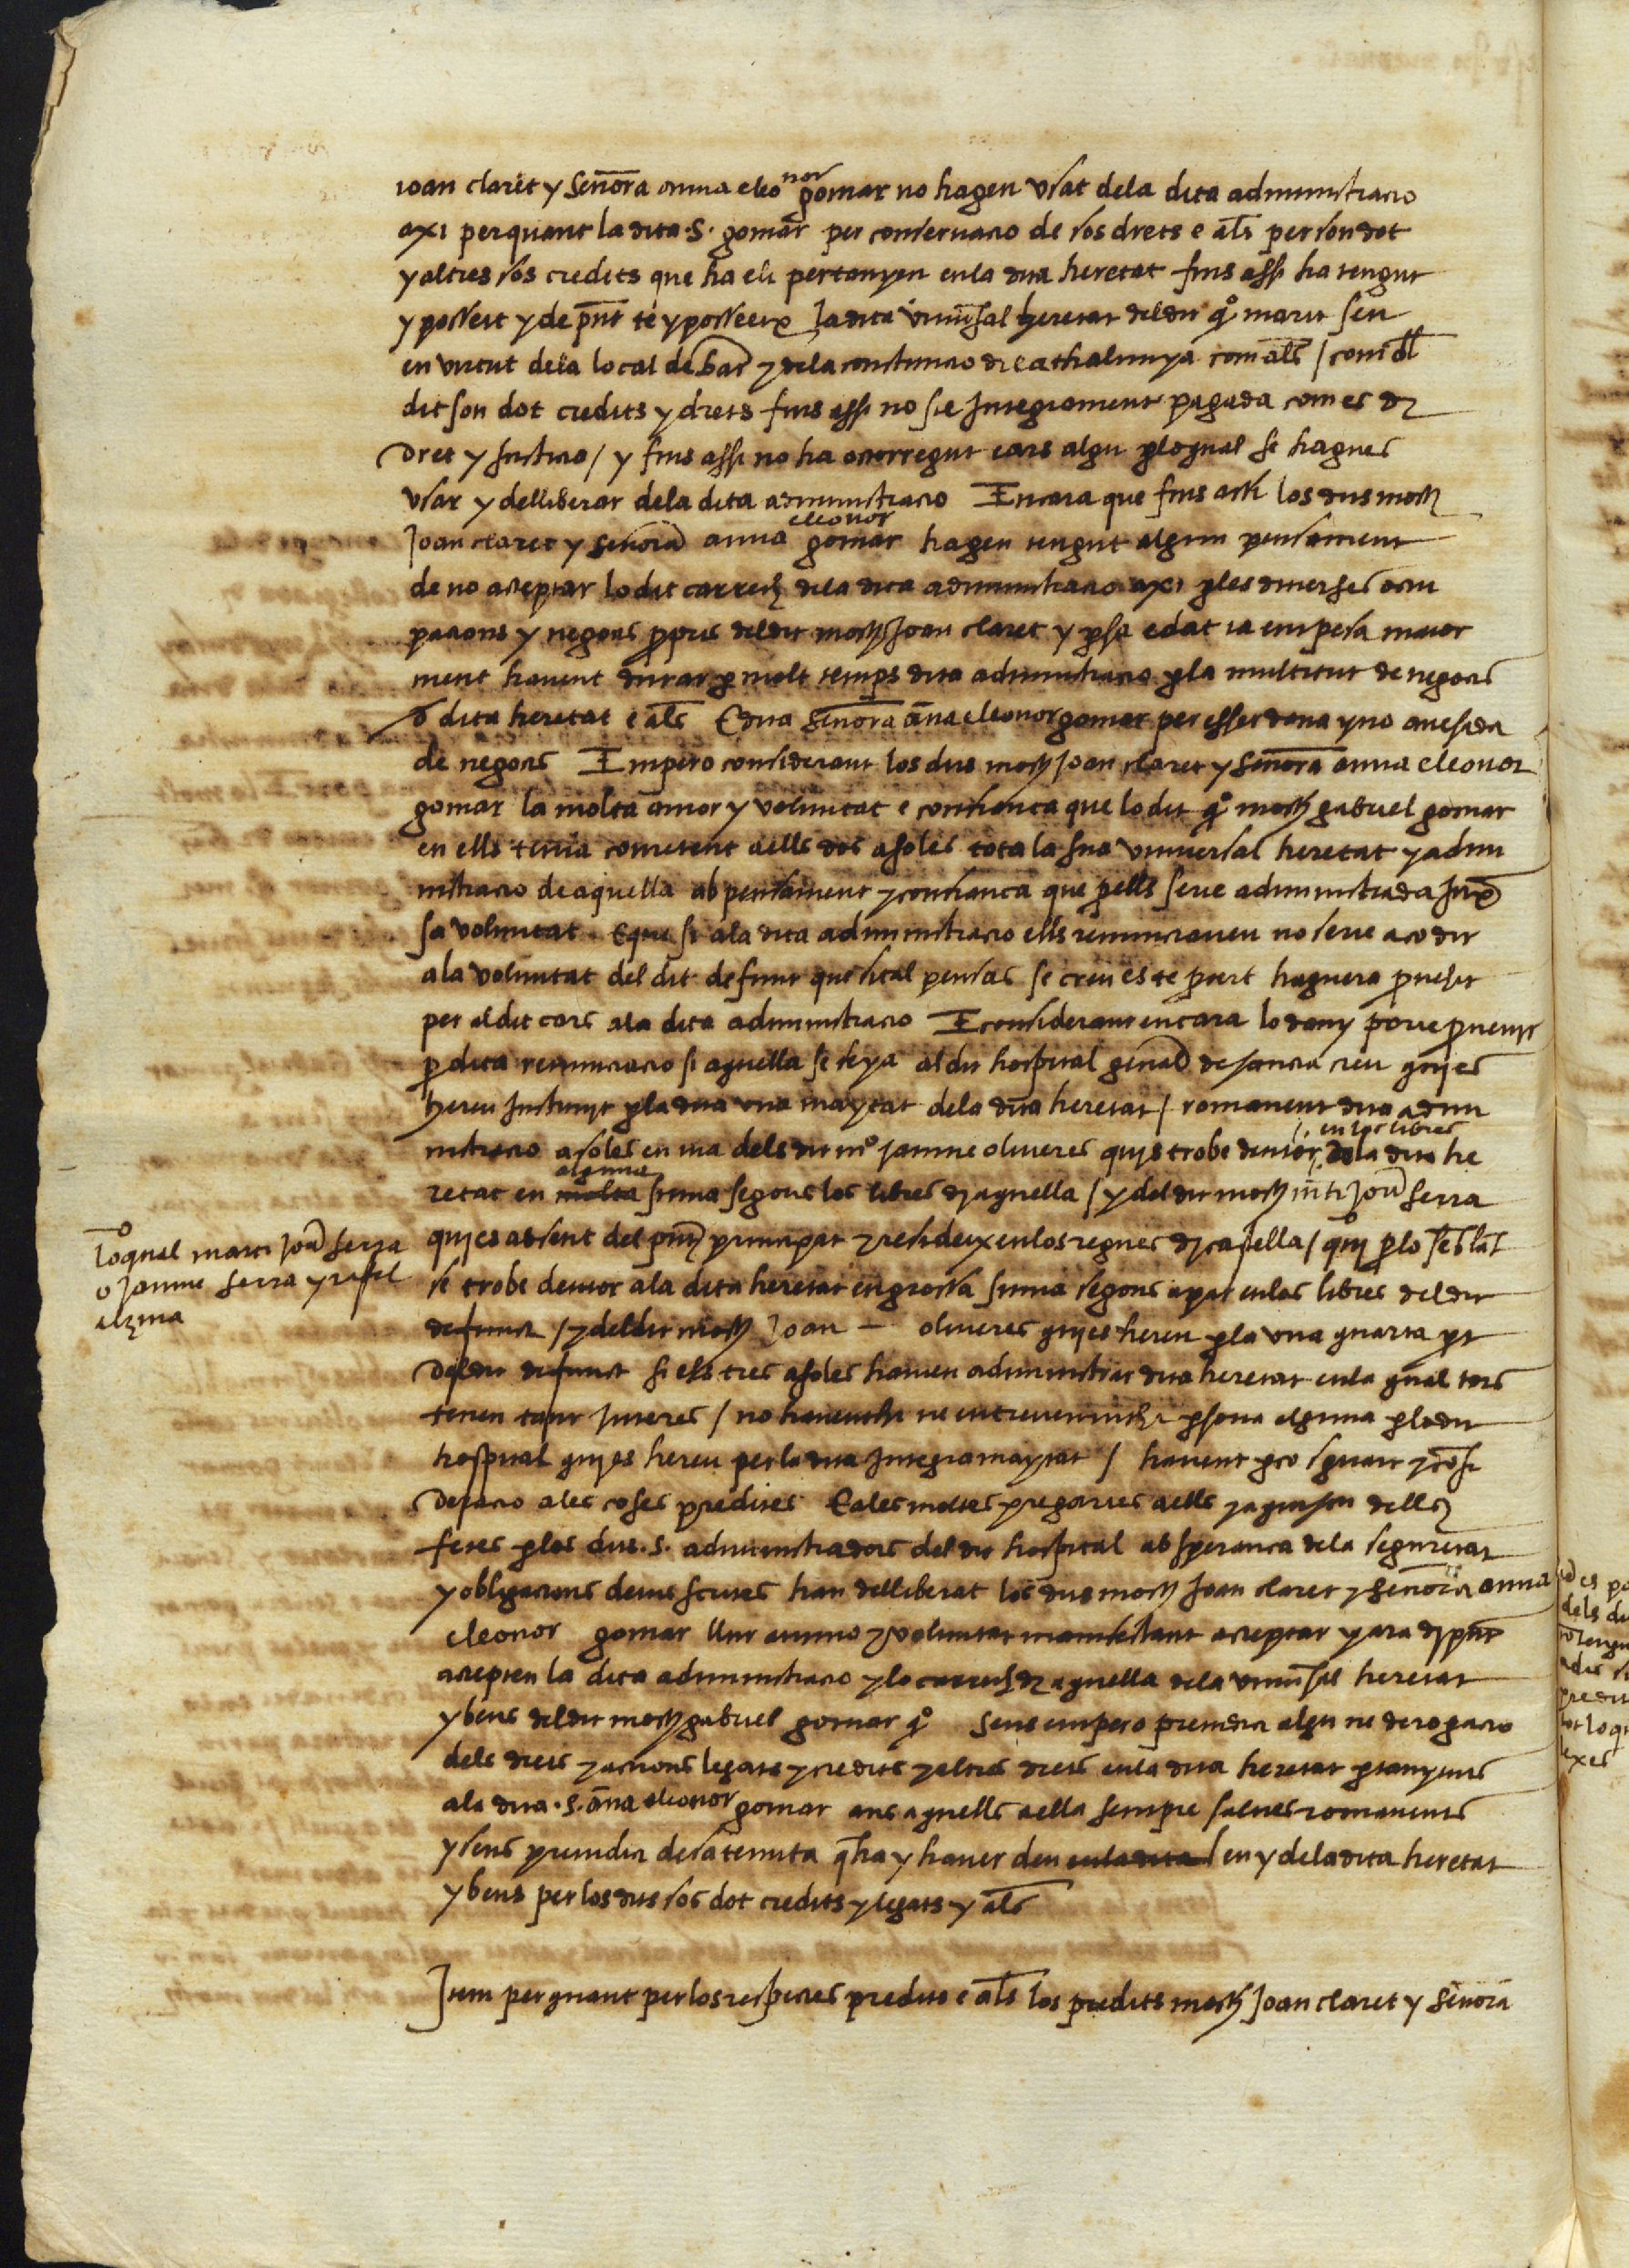 ioan claret y señora anna eleonor gomar no hagen usat dela dita administracio
axi perquant la dita .S. gomar per conservacio de sos drets e als per son dot
y altres sos credits que ha ell pertanyen en la dita heretat fins assi ha tengut
y possehit y de pnt te y posseeix la dita universal heretat del dit qo marit seu
en virtut dela local de bar y dela constitucio de cathalunya com als / com del
dit son dot credits y drets fins assi no sie integrament pagada com es de
dret y justicia / y fins assi no ha occorregut cars algu p lo qual se hagues
usar y delliberar dela dita administracio Encara que fins assi los dits mossen
Joan claret y señora anna eleonor gomar hagen tengut algun pensament
de no acceptar lo dit carrech dela dita administracio axi p les diverses ocu
pacions y negocis propris del dit mossen Joan claret y p sa edat ia empesa maior
ment havent durar p molt temps dita administracio p la multitut de negocis
d dita heretat e als E dita señora ana eleonor gomar per esser dona y no avesada
de negocis Empero considerant los dits mossen Joan claret y señora anna eleonor
gomar la molta amor y voluntat e confiença que lo dit qo mossen gabriel gomar
en ells tenia cometent a ells dos a soles tota la sua universal heretat y admi
nistracio de aquella ab pensament y confiança que p ells serie administrada juxta
sa voluntat E que si ala dita administracio ells renunciaven no serie acodit
ala voluntat del dit defunt que si tal pensas se creu es te part haguera provehit
per al dit cars ala dita administracio E considerant encara lo dany porie provenir
p dita renunciacio si aquella se feya al dit hospital general de sancta creu qui es
hereu instituyt p la dita una maytat dela dita heretat / romanent dita admi
nistracio a soles en ma dels dit mo jaume oliveres qui s trobe deutor en los libres dela dita he
retat en alguna suma segons los libres de aquella / y del dit mossen Marti Joan serra
qui es absent del pnt principat y resideix en los regnes de castella / qui p lo semblant
se trobe deutor ala dita heretat en grossa suma segons apar en los libres del dit
defunct / y del dit mossen Joan — oliveres qui es hereu p la una quarta part
del dit defunct si ells tres a soles havien administrar dita heretat en la qual tots
tenen tant interes / no havent hi ne entrevenint hi persona alguna p lo dit
hospital qui es hereu per la dita integra maytat / havent p ço sguart y consi
deracio ales coses predites E ales moltes pregaries a ells y a quiscu dells
fetes p los dits .S. administradors del dit hospital ab sperança dela seguretat
y obligacions devis scrites han delliberat los dits mossen Joan claret y señora anna
eleonor gomar llur animo y voluntat manifestant acceptar y ara de pnt
accepten la dita administracio y lo carrech de aquella dela universal heretat
y bens del dit mossen gabriel gomar qo sens empero prejudici algu ne derogacio
dels drets y actions legats y credits y altres drets en la dita heretat ptanyents
ala dita .S. ana eleonor gomar ans aquells a ella sempre salves romanents
y sens prejudici de sa tenuta q ha y haver deu en la dita en y dela dita heretat
y bens per los dits sos dot credits y legats y als
lo qual marti Joan serra
o Jaume serra y rafel
alzina
Item per quant per los respectes predits e als los predits mossen Joan claret y señora